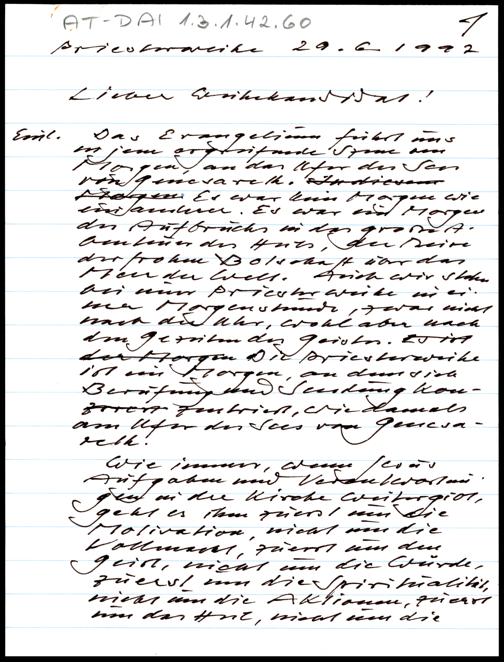 AT-DAI 1.3.1.42.60
1
Priesterweihe 29.6.1992
Lieber Weihekandidat!
Einl. Das Evangelium führt uns
in jene ergreifende Szene am
Morgen, an das Ufer des Sees
von Genesareth. In diesem
Morgen Es war kein Morgen wie
ein anderer. Es war ein Morgen
des Aufbruchs in das große A-
benteuer des Heils, der Reise
der frohen Botschaft über das
Meer der Welt. Auch wir stehen
bei einer Priesterweihe in ei-
ner Morgenstunde, zwar nicht
nach der Uhr, wohl aber nach
den Gezeiten des Geistes. Es ist
der Morgen Die Priesterweihe
ist ein Morgen, an dem sich
Berufung und Sendung kon-
zentriert, wie damals
am Ufer des Sees von Genesa-
reth.
Wie immer, wenn Jesus
Aufgaben und Verantwortun-
gen in der Kirche weitergibt,
geht es ihm zuerst um die
Motivation, nicht um die
Vollmacht, zuerst um den
Geist, nicht um die Würde,
zuerst um die Spiritualität,
nicht um die Aktionen, zuerst
um das Heil, nicht um die